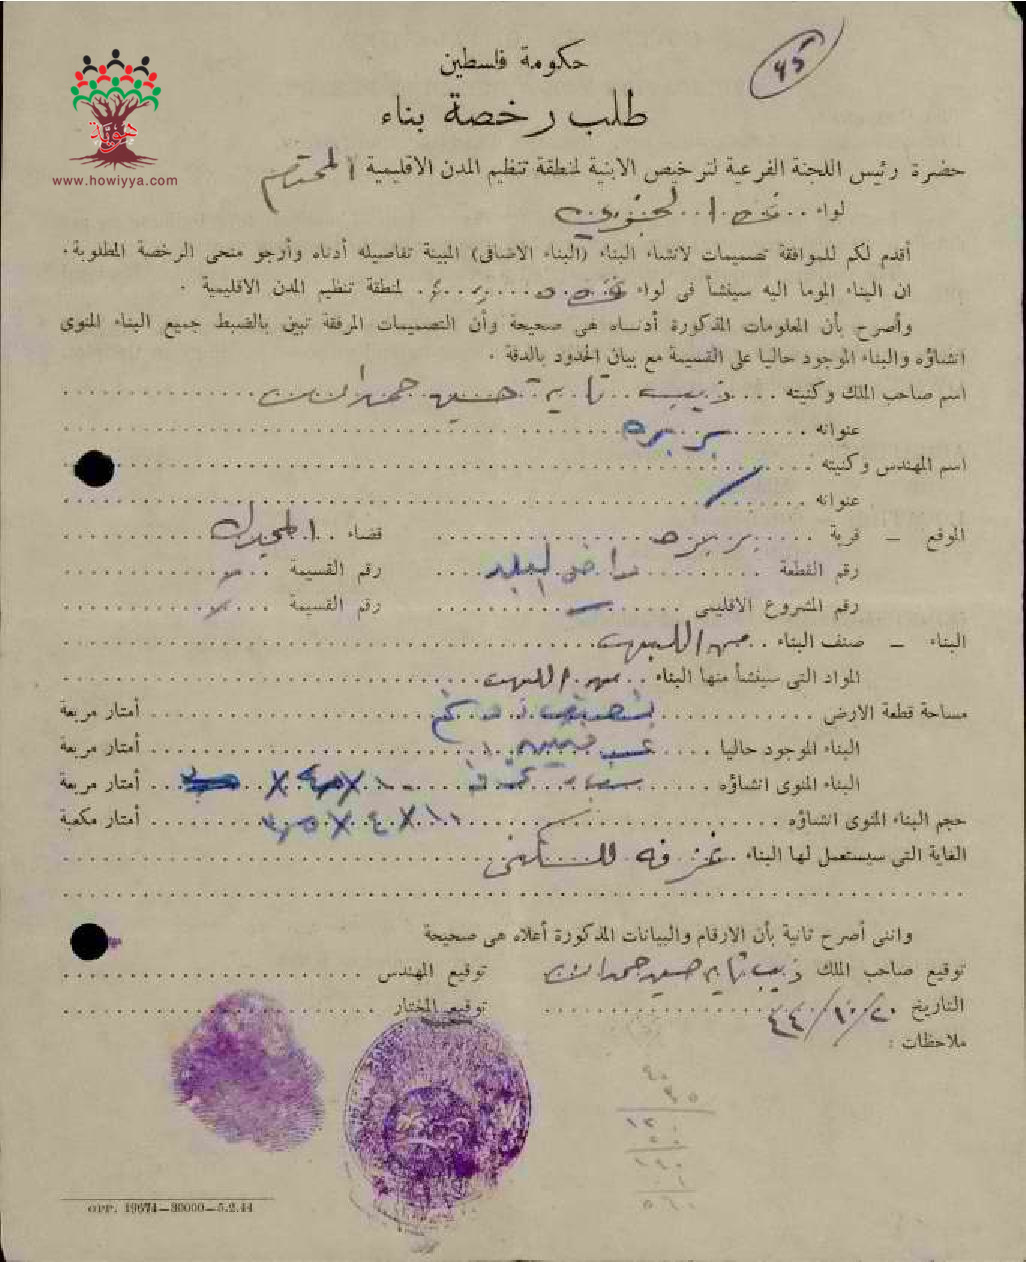 45
هوية
www.howiyya.com
حكومة فلسطين
طلب رخصة بناء
حضرة رئيس اللجنة الفرعية لترخيص الابنية لمنطقة تنظيم المدن الاقليمية المحترم
لواء غزه الجنوبي
أقدم لكم للموافقة تصميمات لانشاء البناء (البناء الاضافى) المبينة تفاصيله أدناه وأرجو منحى الرخصة المطلوبة.
ان البناء الموما اليه سينشأ فى لواء غزه لمنطقة تنظيم المدن الاقليمية.
وأصرح بأن المعلومات المذكورة أدناه هى صحيحة وأن التصميمات المرفقة تبين بالضبط جميع البناء المنوى
انشاؤه والبناء الموجود حاليا على القسيمة مع بيان الحدود بالدقة.
اسم صاحب الملك وكنيته ذيب تايه حسين حمدان
عنوانه بربره
اسم المهندس وكنيته
عنوانه
الموقع – قرية بربره قضاء المجدل
رقم القطعة داخل البلد رقم القسيمة
رقم المشروع الاقليمى رقم القسيمة
البناء – صنف البناء من اللبن
المواد التى سينشأ منها البناء من اللبن
مساحة قطعة الارض أمتار مربعة
البناء الموجود حاليا أمتار مربعة
البناء المنوى انشاؤه أمتار مربعة
حجم البناء المنوى انشاؤه ١١ × ٤ × ٣٫٥ أمتار مكعبة
الغاية التى سيستعمل لها البناء غرفه للسكنى
وانى أصرح ثانية بأن الارقام والبيانات المذكورة أعلاه هى صحيحة
توقيع صاحب الملك ذيب تايه حسين حمدان توقيع المهندس
التاريخ ٢٠/١٠/٤٤ توقيع المختار
ملاحظات :
OPP. 19674—30000—5.2.44